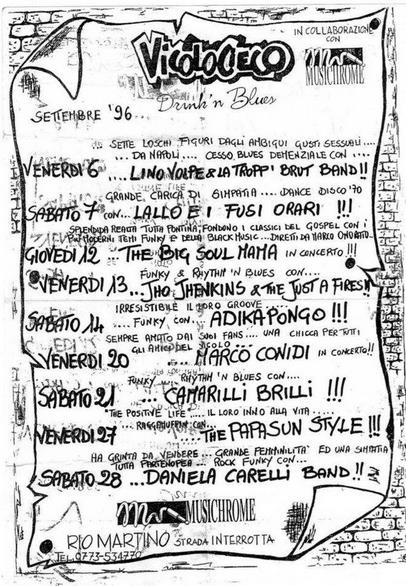 VICOLOCIECO
IN COLLABORAZIONE
CON
MUSICHROME
Drink'n Blues
SETTEMBRE '96
SETTE LOSCHI FIGURI DAGLI AMBIGUI GUSTI SESSUALI....
... DA NAPOLI..... CESSO, BLUES DEMENZIALE CON ....
VENERDI 6 .... LINO VOLPE & LA TROPP' BRUT BAND!!
GRANDE CARICA DI SIMPATIA .... DANCE DISCO '70
SABATO 7 CON... LALLO E I FUSI ORARI !!!
SPLENDIDA REALTÀ TUTTA PONTINA, FONDONO I CLASSICI DEL GOSPEL CON I
PIÙ MODERNI TEMI FUNKY E DELLA BLACK MUSIC... DIRETTI DA MARCO ONORATO...
GIOVEDI 12 ... THE BIG SOUL MAMA IN CONCERTO !!!
FUNKY & RHYTHM 'N BLUES CON....
VENERDI 13... JHO JHENKINS & THE JUST A FIRES !!
IRRESISTIBILE IL LORO GROOVE ......
SABATO 14 .... FUNKY CON... ADIKAPONGO !!!
SEMPRE AMATO DAI SUOI FANS .... UNA CHICCA PER TUTTI
GLI AMICI DEL VICOLO ...
VENERDI 20 ... MARCO CONIDI IN CONCERTO!!
FUNKY RHYTHM 'N BLUES CON ....
SABATO 21 ... CAMARILLI BRILLI !!!
"THE POSITIVE LIFE" .... IL LORO INNO ALLA VITA .....
RAGGAMUFFIN CON...
VENERDI 27 ... THE PAPASUN STYLE !!!
HA GRINTA DA VENDERE ... GRANDE FEMMINILITÀ ED UNA SIMPATIA
TUTTA PARTENOPEA ... ROCK FUNKY CON...
SABATO 28 ... DANIELA CARELLI BAND !!
MUSICHROME
RIO MARTINO STRADA INTERROTTA
TEL. 0773-534770